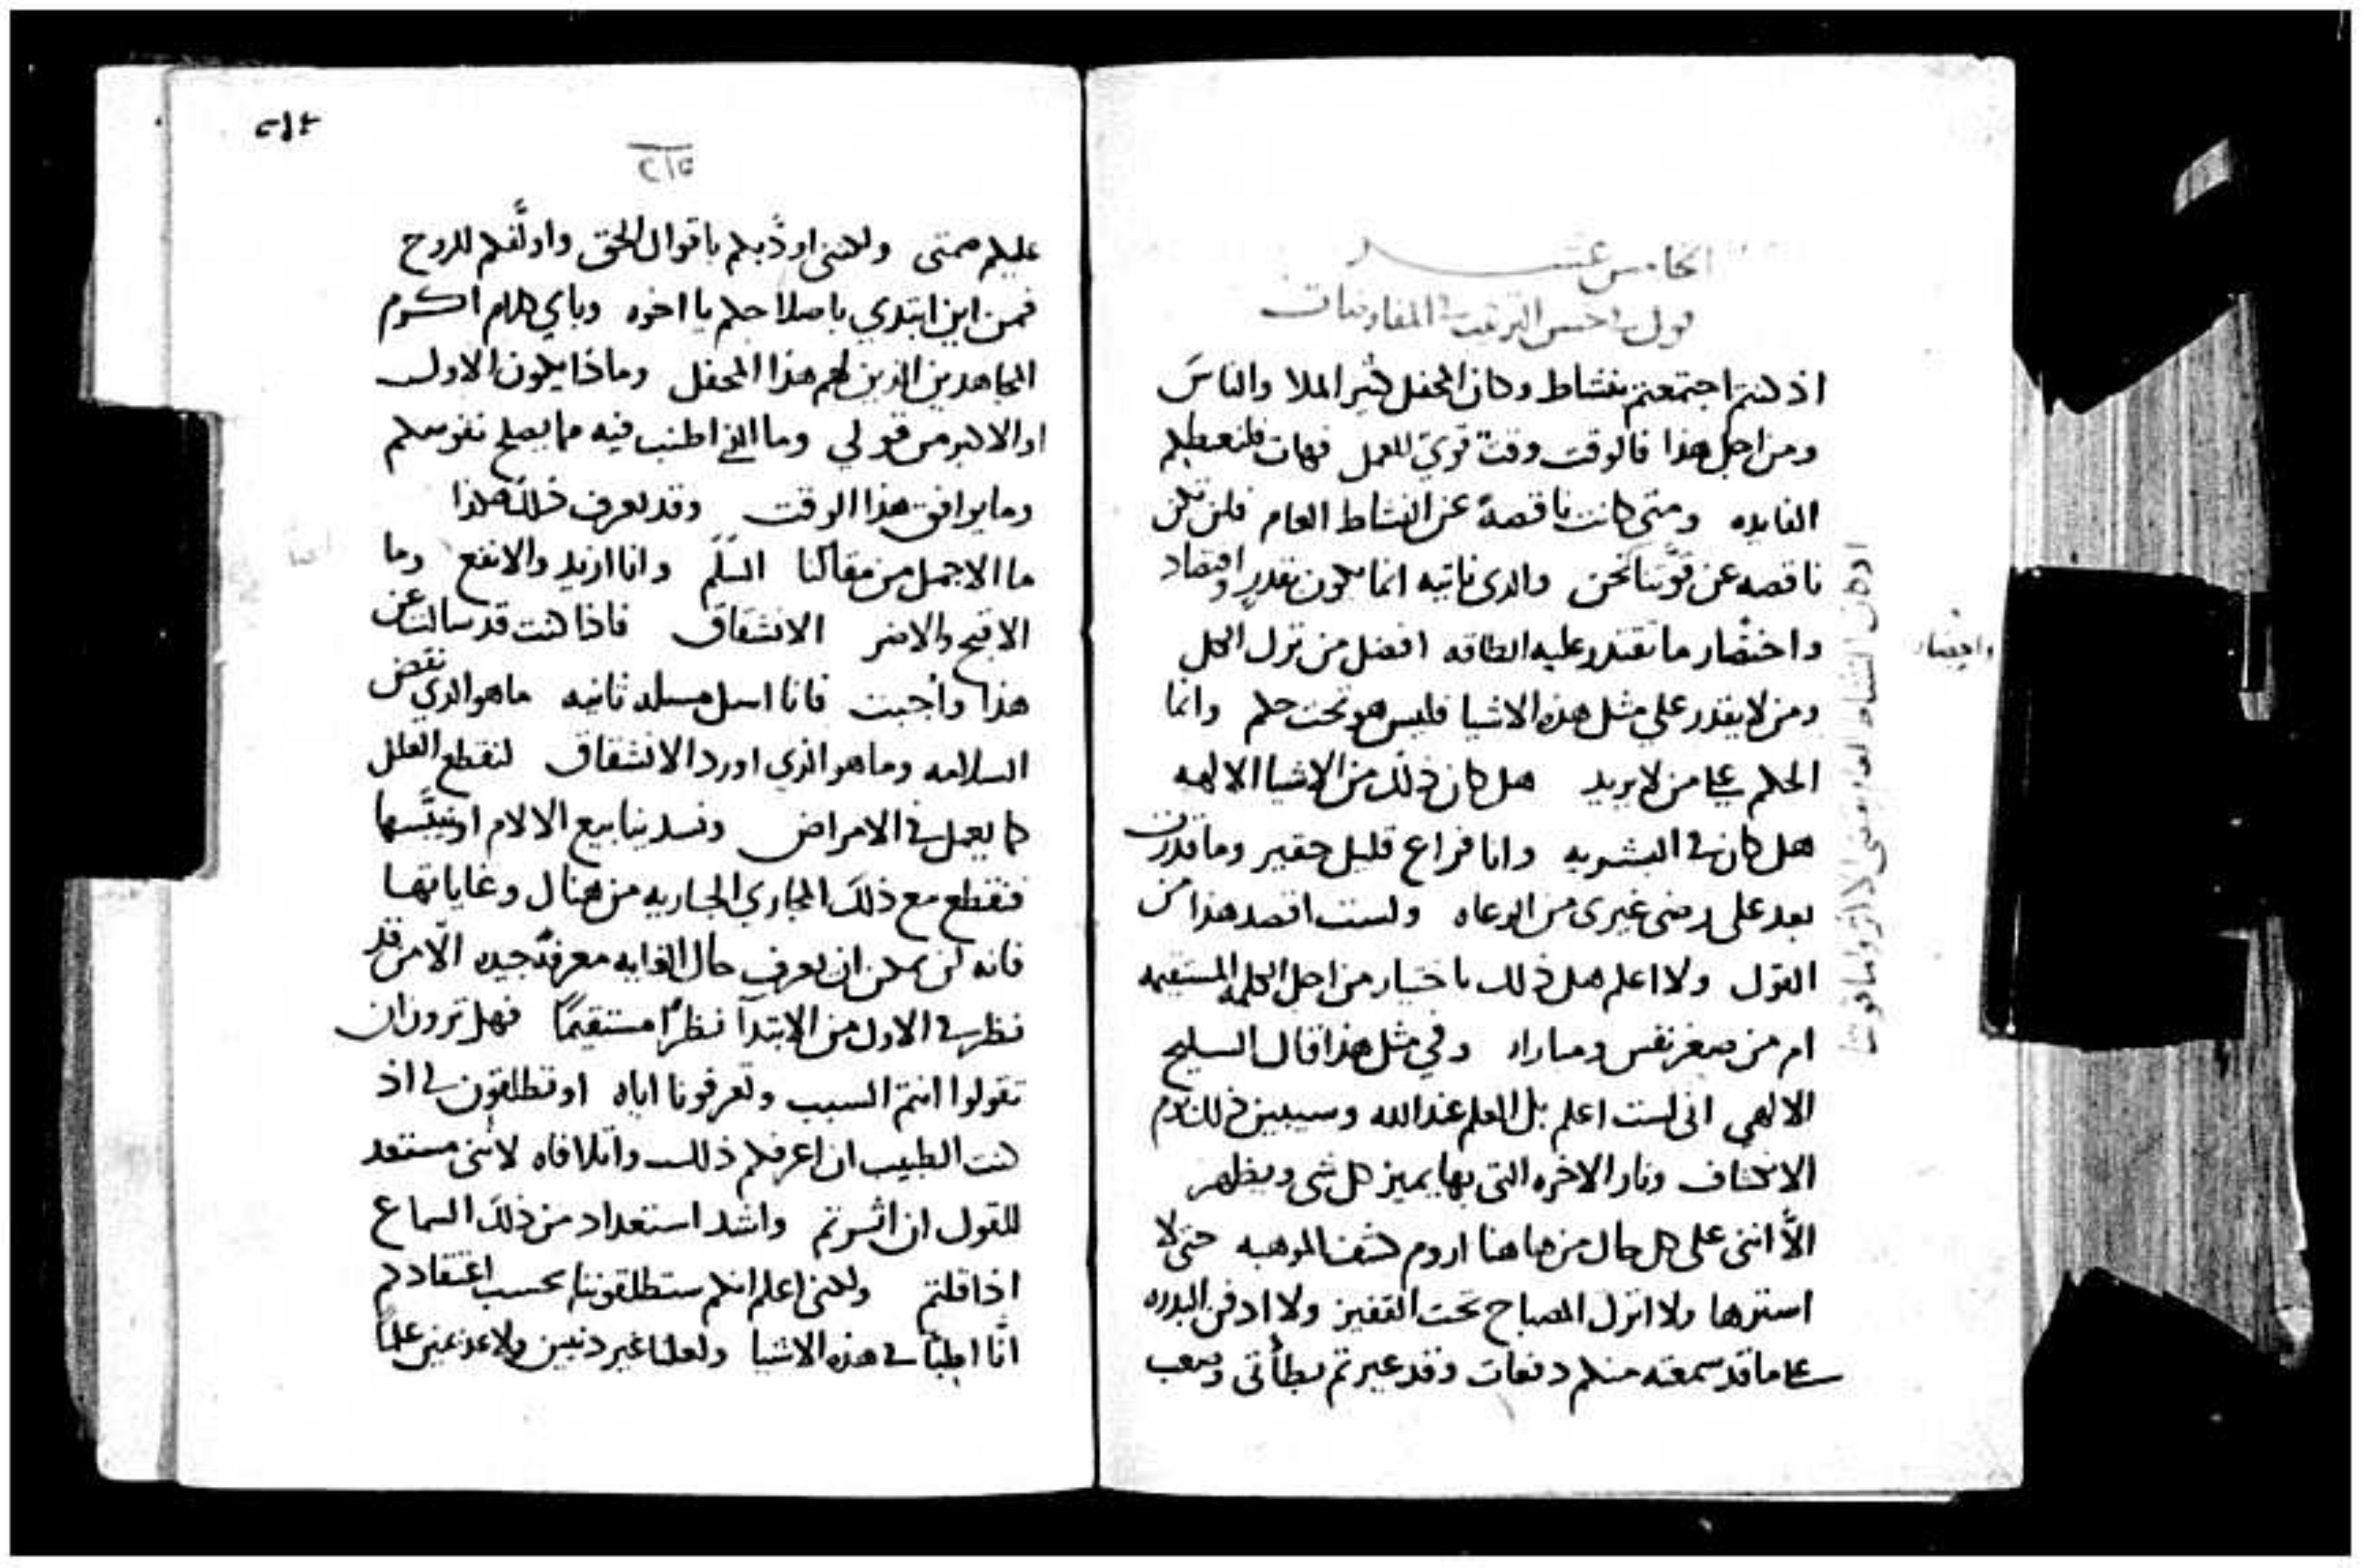 الخامس عشر
قول في احسن الترتيب في المفاوضات
اذ كنتم اجتمعتم بنشاط وكان المحفل كثير الملا والناس
ومن اجل هذا فالوقت وقت قوي للعمل فهات فلنعطكم
الفايده ومتى كانت ناقصة عن النشاط العام فلن تكن
ناقصه عن قوتنا نحن والذى ناتيه انما يكون بقدر واقتصاد
واختصار ما تقتدر عليه الطاقه افضل من ترك الكل
ومن لا يقدر على مثل هذه الاشيا فليس هو تحت حكم وانما
الحكم على من لا يريد هل كان ذلك من الاشيا الالهيه
هل كان في البشريه وانا فراع قليل حقير وما قدرت
بعد على رضى غيرى من الرعاه ولست اقصد هذا من
القول ولا اعلم هل ذلك باختيار من اجل الكلمه المستقيمه
ام من صغر نفس ومماراه وفي مثل هذا قال السليح
الالهي انى لست اعلم بل العلم عند الله وسيبين ذلك يوم
الانكشاف ونار الاخره التى بها يميز كل شى ويظهر
الّا اننى على كل حال من هاهنا اروم كشف الموهبه حتى لا
استرها ولا اترك المصباح تحت القفيز ولا ادفن البدره
على ما قد سمعته منكم دفعات وقد عيرتم بطأتى وصعب
واختصار
او كان النشاط العام
٢١٥
عليكم صمتى ولكننى اودّبكم باقوال الحق واولّفكم للروح
فمن اين ابتدي باصلاحكم يا اخوه وباي كلام اكرم
المجاهدين الذين لهم هذا المحفل وماذا يكون الاول
او الاكبر من قولي وما الذي اطنب فيه مما يصلح نفوسكم
وما يوافق هذا الوقت وقد يعرف ذلك هكذا
ما الاجمل من مقالنا السلم وانا ازيد والانفع وما
الاقبح والاضر الانشقاق فاذا كنت قد سالت عن
هذا واجبت فانا اسل مسله ثانيه ما هو الذي نقض
السلامه وما هو الذي اورد الانشقاق لنقطع العلل
كما يعمل في الامراض ونسد ينابيع الالام او نيبّسها
فنقطع مع ذلك المجاري الجاريه من هناك وغاياتها
فانه لن يمكن ان يعرف حال الغايه معرفة جيده الّا من قد
نظر في الاول من الابتدآ نظرًا مستقيمًا فهل ترون ان
تقولوا انتم السبب وتعرفونا اياه او تطلقون لي اذ
كنت الطبيب ان اعرفكم ذلك واتلافاه لأننى مستعد
للقول ان اثرتم واشد استعداد من ذلك السماع
اذا قلتم ولكننى اعلم انكم ستطلقون لنا بحسب اعتقادكم
انّا اطبّا في هذه الاشيا ولعلنا غير دنيين ولا